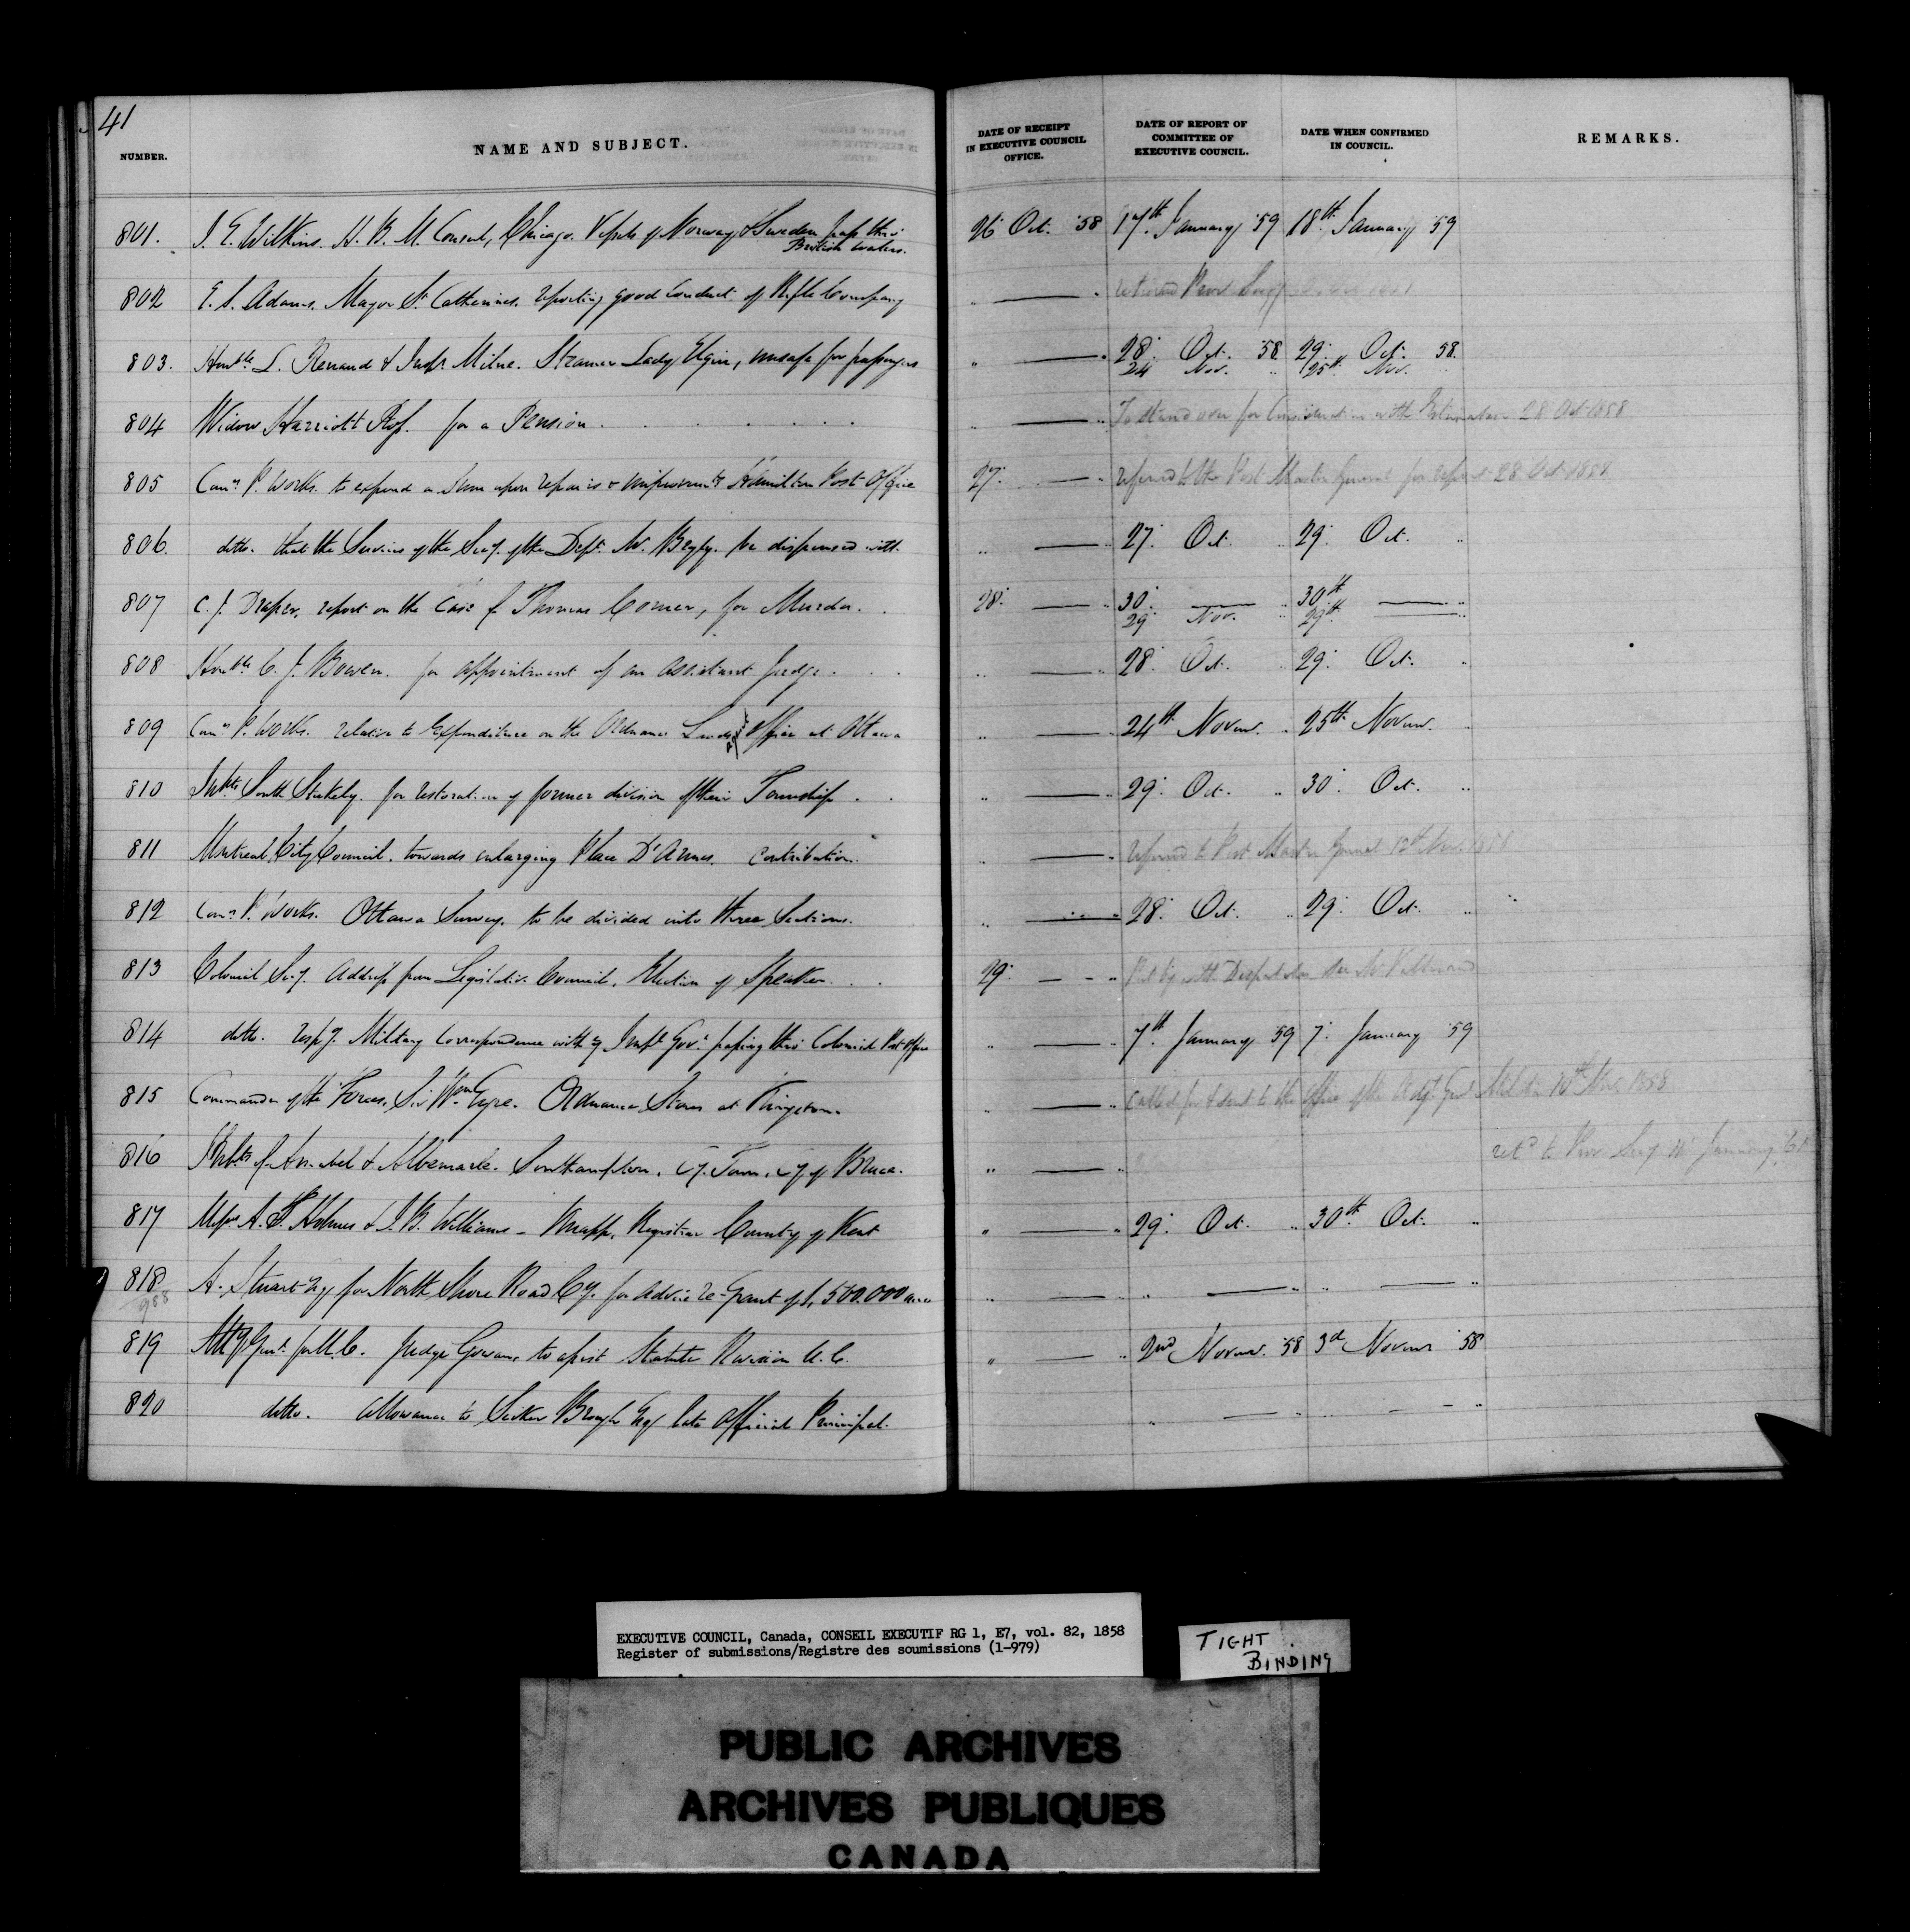 41
NUMBER.
NAME AND SUBJECT.
DATE OF RECEIPT
IN EXECUTIVE COUNCIL
OFFICE.
DATE OF REPORT OF
COMMITTEE OF
EXECUTIVE COUNCIL.
DATE WHEN CONFIRMED
IN COUNCIL.
REMARKS.
801. J. E. Wilkins. H. B. M. Consul, Chicago. Vessels of Norway & Sweden pass thro' 26 Oct. '58 17th January '59 18th January '59
British waters.
802 E. S. Adams. Mayor St Catherines. reporting good conduct of Rifle Company " — " Prov Secy
803. Honble L. Renaud & Insp. Milne. Steamer Lady Elgin, unsafe for passengers " — " 28. Oct. '58 29. Oct. 58.
24 Nov. " 25th Nov. "
804 Widow Harriott Ross. for a Pension. " — " To stand over for Consideration with Estimates - 28 Oct 1858
805 Comr P. Works. to expend a Sum upon repairs & improvements Hamilton Post Office 27. — " referred to the Post Master General for report 28 Oct 1858
806. ditto. that the Services of the Secy. of the Dept. Mr. Begly. be dispensed with. " — " 27. Oct. " 29. Oct. "
807 C. J. Draper. report on the Case of Thomas Comer, for Murder. 28. — " 30. — " 30th — "
29 Nov. " 29th — "
808 Honble C. J. Bowen. for appointment of an Assistant Judge. " — " 28. Oct. 29. Oct. "
809 Comr P. Works. relative to Expenditure on the Ordnance Lands Office at Ottawa " — " 24th Novemr. " 25th Novemr. "
810 Inhbts South Stukely. for restoration of former division of their Township. " — " 29. Oct. " 30. Oct. "
811 Montreal City Council. towards enlarging Place D'Armes. Contribution. " — " referred to Post Master General 12th Nov. 1858
812 Comr P. Works. Ottawa Survey. to be divided into three Sections. " — " 28. Oct. " 29. Oct. "
813 Colonial Secy. Address from Legislative Council. Election of Speaker. 29. — " with Despatches
814 ditto. respg. Military Correspondence with Impl Govt. passing thro' Colonial Post Office " — " 7th January '59 7. January '59
815 Commander of the Forces. Sir Wm Eyre. Ordnance Stores at Kingston. " — " Called for & sent to the office of the Adjt. Genl Militia 10th Nov. 1858
816 Inhbts of Amabel & Albemarle. Southampton. Cy. Town. Cy of Bruce. " — " retd to Prov Secy January 61
817 Messrs A. Holmes & J. B. Williams - Knapp. Registrar County of Kent " — " 29. Oct. " 30th Oct. "
818 A. Stuart Esq for North Shore Road Cy. for advice re-Grant of 1,500.000 acres " — " " — " " — "
988
819 Atty Genl. for U. C. Judge Gowan, to assist Statute Revision U. C. " — " 2nd Novemr. '58 3d Novemr '58
820 ditto. allowance to Secker Brough Esq late Official Principal. " — " " — "
EXECUTIVE COUNCIL, Canada, CONSEIL EXECUTIF RG 1, E7, vol. 82, 1858
Register of submissions/Registre des soumissions (1-979)
TIGHT
BINDING
PUBLIC ARCHIVES
ARCHIVES PUBLIQUES
CANADA